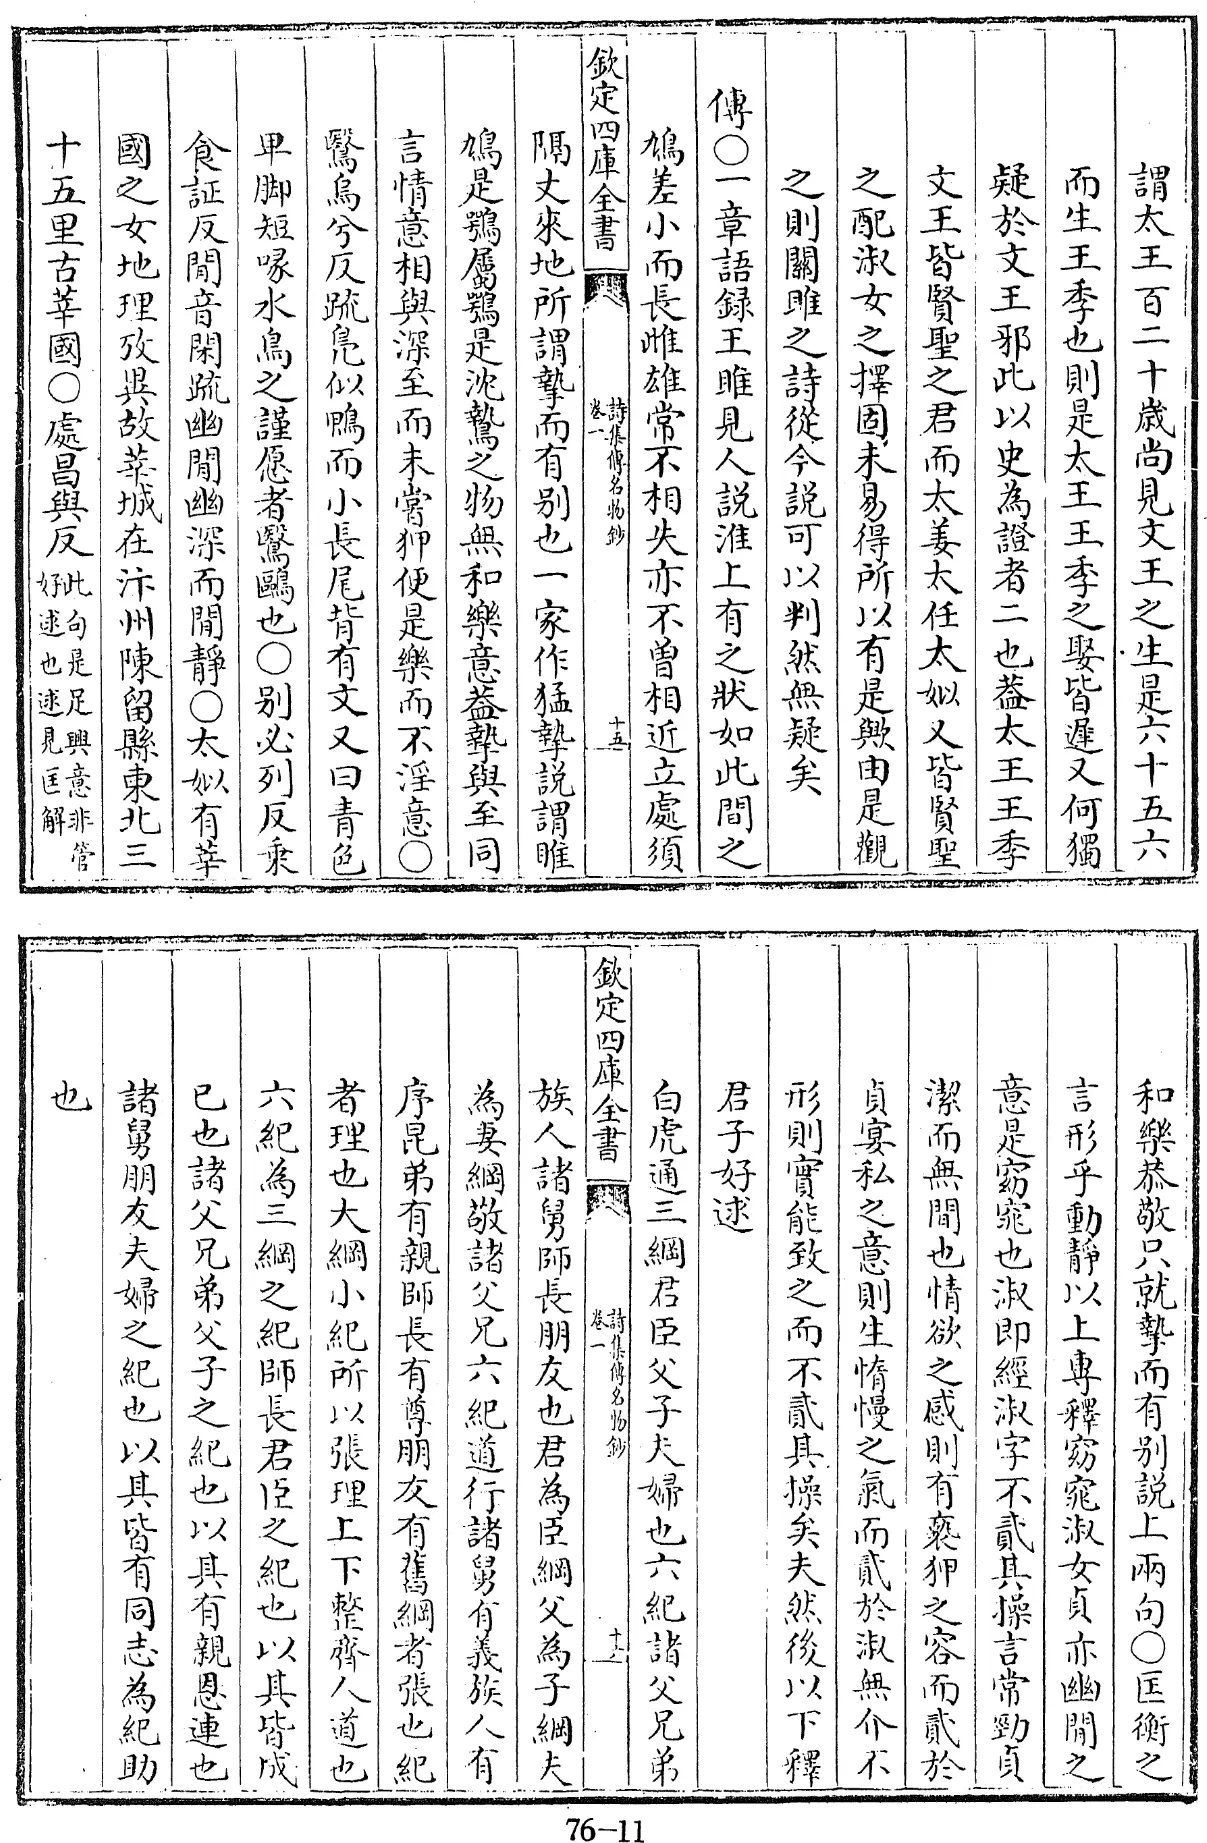 謂太王百二十歲尚見文王之生是六十五六
而生王季也則是太王王季之娶皆遲又何獨
疑於文王邪此以史為證者二也葢太王王季
文王皆賢聖之君而太姜太任太姒又皆賢聖
之配淑女之擇固未易得所以有是歟由是觀
之則關雎之詩從今説可以判然無疑矣
傳○一章語録王雎見人説淮上有之狀如此間之
鳩差小而長雌雄常不相失亦不曾相近立處須
欽定四庫全書
詩集傳名物鈔
卷一
十五
隔丈來地所謂摯而有别也一家作猛摯説謂雎
鳩是鶚屬鶚是沈鷙之物無和樂意葢摯與至同
言情意相與深至而未嘗狎便是樂而不淫意○
鷖烏兮反疏鳧似鴨而小長尾背有文又曰青色
卑脚短喙水鳥之謹愿者鷖鷗也○别必列反乘
食証反閒音閑疏幽閒幽深而閒靜○太姒有莘
國之女地理攷異故莘城在汴州陳留縣東北三
十五里古莘國○處昌與反此句是足興意非管
好逑也逑見匡解
和樂恭敬只就摯而有别説上兩句○匡衡之
言形乎動靜以上專釋窈窕淑女貞亦幽閒之
意是窈窕也淑即經淑字不貳其操言常勁貞
潔而無間也情欲之感則有褻狎之容而貳於
貞宴私之意則生惰慢之氣而貳於淑無介不
形則實能致之而不貳其操矣夫然後以下釋
君子好逑
白虎通三綱君臣父子夫婦也六紀諸父兄弟
欽定四庫全書
詩集傳名物鈔
卷一
十六
族人諸舅師長朋友也君為臣綱父為子綱夫
為妻綱敬諸父兄六紀道行諸舅有義族人有
序昆弟有親師長有尊朋友有舊綱者張也紀
者理也大綱小紀所以張理上下整齊人道也
六紀為三綱之紀師長君臣之紀也以其皆成
已也諸父兄弟父子之紀也以其有親恩連也
諸舅朋友夫婦之紀也以其皆有同志為紀助
也
76-11